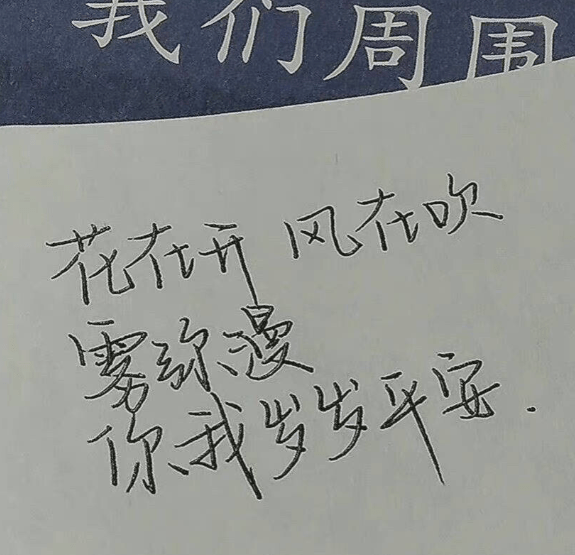 我们周围
花在开 风在吹
雾弥漫
你我岁岁平安.